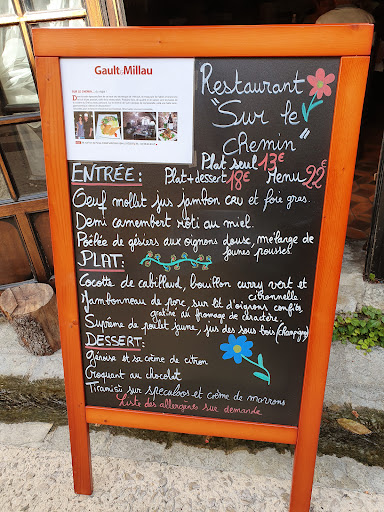 Gault&Millau
Restaurant
"Sur le
chemin"
Plat seul 13€
Plat+dessert 18€ Menu 22€
ENTRÉE:
Oeuf mollet jus jambon cru et foie gras.
Demi camembert rôti au miel.
Poêlée de gésiers aux oignons doux, mélange de
jeunes pousses
PLAT:
Cocotte de cabillaud, bouillon curry vert et
citronnelle.
Jambonneau de porc sur lit d'oignons confits,
gratiné au fromage de caractère.
Suprême de poulet jaune, jus des sous bois (champignons)
DESSERT:
Génoise et sa crème de citron
Croquant au chocolat
Tiramisù sur speculoos et crème de marrons
Liste des allergènes sur demande